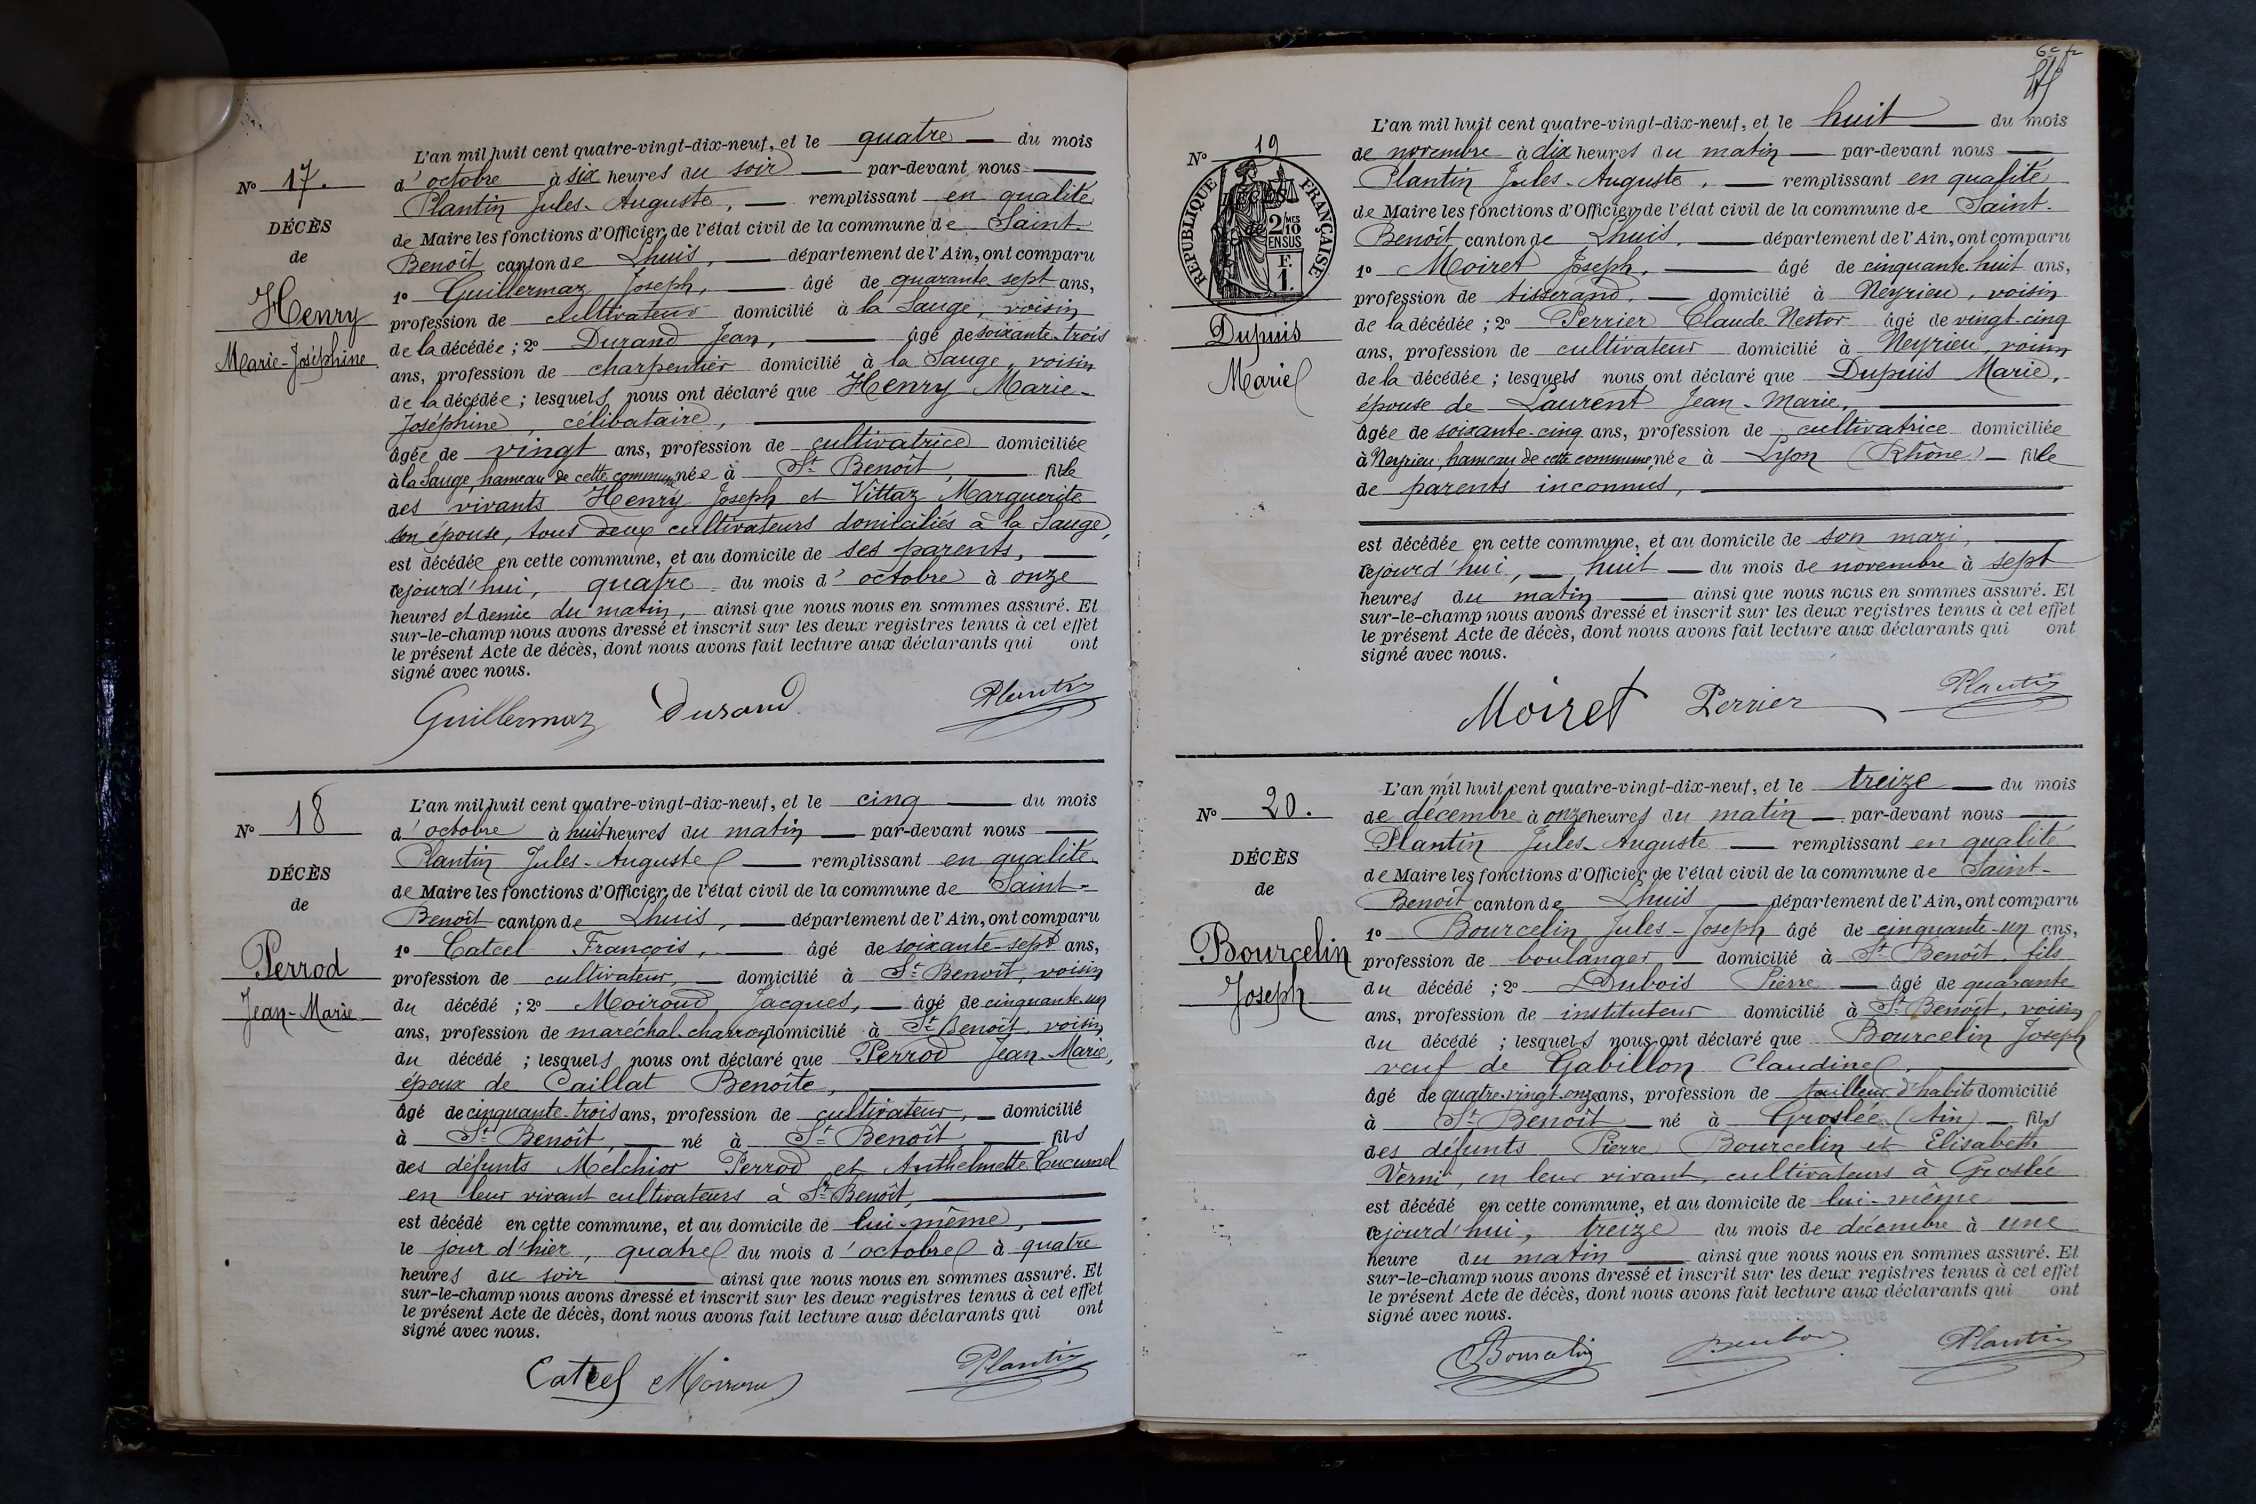 N° 17.
DÉCÈS
de
Henry
Marie-Joséphine
L'an mil huit cent quatre-vingt-dix-neuf, et le quatre du mois
d'octobre à six heures du soir par-devant nous
Plantin Jules-Auguste, remplissant en qualité
de Maire les fonctions d'Officier de l'état civil de la commune de Saint-
Benoît canton de Lhuis, département de l'Ain, ont comparu
1° Guillermaz Joseph, âgé de quarante sept ans,
profession de cultivateur domicilié à la Sauge, voisin
de la décédée ; 2° Durand Jean, âgé de soixante-trois
ans, profession de charpentier domicilié à la Sauge, voisin
de la décédée ; lesquels nous ont déclaré que Henry Marie-
Joséphine, célibataire,
âgée de vingt ans, profession de cultivatrice domiciliée
à la Sauge, hameau de cette commune née à St Benoît, fille
des vivants Henry Joseph et Vittaz Marguerite
son épouse, tous deux cultivateurs domiciliés à la Sauge,
est décédée en cette commune, et au domicile de ses parents,
cejourd'hui, quatre du mois d'octobre à onze
heures et demie du matin, ainsi que nous nous en sommes assuré. Et
sur-le-champ nous avons dressé et inscrit sur les deux registres tenus à cet effet
le présent Acte de décès, dont nous avons fait lecture aux déclarants qui ont
signé avec nous.
Guillermaz Durand Plantin
N° 18
DÉCÈS
de
Perrod
Jean-Marie
L'an mil huit cent quatre-vingt-dix-neuf, et le cinq du mois
d'octobre à huit heures du matin par-devant nous
Plantin Jules-Auguste remplissant en qualité
de Maire les fonctions d'Officier de l'état civil de la commune de Saint-
Benoît canton de Lhuis, département de l'Ain, ont comparu
1° Catcel François, âgé de soixante-sept ans,
profession de cultivateur, domicilié à St Benoît, voisin
du décédé ; 2° Moiroud Jacques, âgé de cinquante-un
ans, profession de maréchal-charron domicilié à St Benoît, voisin
du décédé ; lesquels nous ont déclaré que Perrod Jean-Marie,
époux de Caillat Benoîte,
âgé de cinquante-trois ans, profession de cultivateur, domicilié
à St Benoît, né à St Benoît fils
des défunts Melchior Perrod et Anthelmette Cucumel
en leur vivant cultivateurs à St Benoît,
est décédé en cette commune, et au domicile de lui-même,
le jour d'hier, quatre du mois d'octobre à quatre
heures du soir ainsi que nous nous en sommes assuré. Et
sur-le-champ nous avons dressé et inscrit sur les deux registres tenus à cet effet
le présent Acte de décès, dont nous avons fait lecture aux déclarants qui ont
signé avec nous.
Catcel Moiroud Plantin
6e fr
N° 19
RÉPUBLIQUE FRANÇAISE
2/10 MES
EN SUS
F.
1.
Dupuis
Marie
L'an mil huit cent quatre-vingt-dix-neuf, et le huit du mois
de novembre à dix heures du matin par-devant nous
Plantin Jules-Auguste, remplissant en qualité
de Maire les fonctions d'Officier de l'état civil de la commune de Saint-
Benoît canton de Lhuis, département de l'Ain, ont comparu
1° Moiret Joseph, âgé de cinquante-huit ans,
profession de tisserand, domicilié à Neyrieu, voisin
de la décédée ; 2° Perrier Claude Nestor âgé de vingt-cinq
ans, profession de cultivateur domicilié à Neyrieu, voisin
de la décédée ; lesquels nous ont déclaré que Dupuis Marie,
épouse de Laurent Jean-Marie,
âgée de soixante-cinq ans, profession de cultivatrice domiciliée
à Neyrieu, hameau de cette commune, née à Lyon (Rhône) fille
de parents inconnus,
est décédée en cette commune, et au domicile de son mari,
cejourd'hui, huit du mois de novembre à sept
heures du matin ainsi que nous nous en sommes assuré. Et
sur-le-champ nous avons dressé et inscrit sur les deux registres tenus à cet effet
le présent Acte de décès, dont nous avons fait lecture aux déclarants qui ont
signé avec nous.
Moiret Perrier Plantin
N° 20.
DÉCÈS
de
Bourcelin
Joseph
L'an mil huit cent quatre-vingt-dix-neuf, et le treize du mois
de décembre à onze heures du matin par-devant nous
Plantin Jules-Auguste remplissant en qualité
de Maire les fonctions d'Officier de l'état civil de la commune de Saint-
Benoît canton de Lhuis département de l'Ain, ont comparu
1° Bourcelin Jules-Joseph âgé de cinquante-un ans,
profession de boulanger domicilié à St Benoît, fils
du décédé ; 2° Dubois Pierre âgé de quarante
ans, profession de instituteur domicilié à St Benoît, voisin
du décédé ; lesquels nous ont déclaré que Bourcelin Joseph
veuf de Gabillon Claudine,
âgé de quatre-vingt-onze ans, profession de tailleur d'habits domicilié
à St Benoît né à Groslée (Ain) fils
des défunts Pierre Bourcelin et Elisabeth
Verni, en leur vivant, cultivateurs à Groslée
est décédé en cette commune, et au domicile de lui-même
cejourd'hui, treize du mois de décembre à une
heure du matin ainsi que nous nous en sommes assuré. Et
sur-le-champ nous avons dressé et inscrit sur les deux registres tenus à cet effet
le présent Acte de décès, dont nous avons fait lecture aux déclarants qui ont
signé avec nous.
Bourcelin Plantin